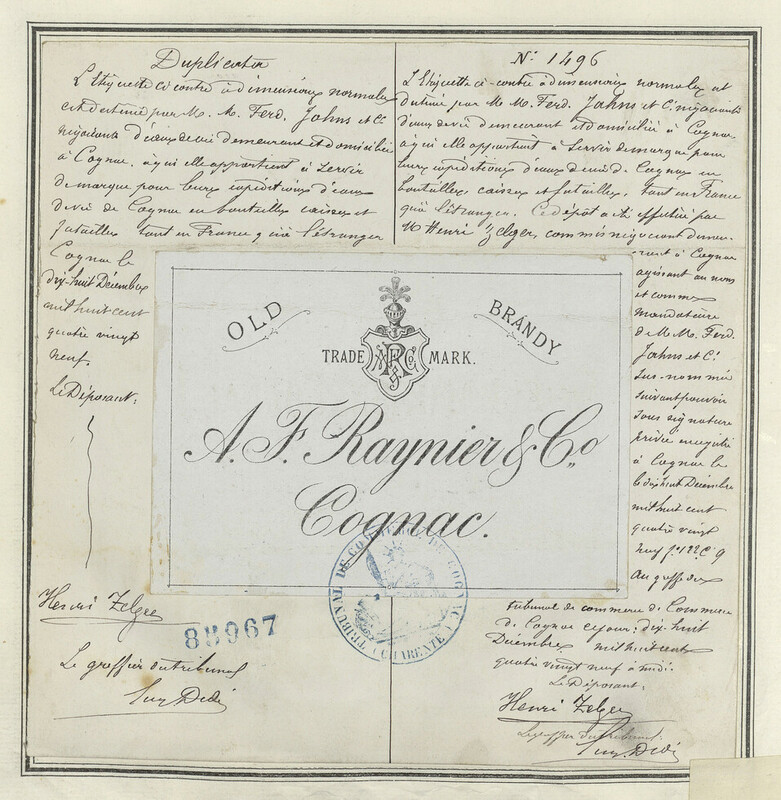 Duplicata
L'étiquette ci contre à dimensions normales
est destinée par M. M. Ferd. Johns et Cie
négociants d'eaux de vie demeurant et domiciliés
à Cognac, à qui elle appartient à servir
de marque pour leurs expéditions d'eaux
de vie de Cognac en bouteilles caisses et
futailles tant en France qu'à l'étranger
Cognac le
dix-huit Décembre
mil huit cent
quatre vingt
neuf.
Le Déposant:
Henri Zelger
85967
Le greffier du tribunal
N° 1496
L'étiquette ci-contre à dimensions normales est
destinée par M. M. Ferd. Johns et Cie négociants
d'eaux de vie demeurant et domiciliés à Cognac
à qui elle appartient à servir de marque pour
leurs expéditions d'eaux de vie de Cognac en
bouteilles, caisses et futailles, tant en France
qu'à l'étranger. Ce dépôt a été effectué par
M Henri Zelger, commis négociant demeu-
rant à Cognac
agissant au nom
et comme
mandataire
de M. M. Ferd.
Johns et Cie
sus-nommé
suivant pouvoir
sous signature
privée enregistré
à Cognac le
dix huit Décembre
mil huit cent
quatre vingt
neuf f° 122 C 9
Au greffe du
tribunal de commerce de Commerce
de Cognac ce jour: dix-huit
Décembre mil huit cent
quatre vingt neuf à midi.
Le Déposant,
Henri Zelger
Le greffier du tribunal:
OLD BRANDY
TRADE MARK.
A. F. Raynier & Co
Cognac.
TRIBUNAL DE COMMERCE DE COGNAC (CHARENTE)